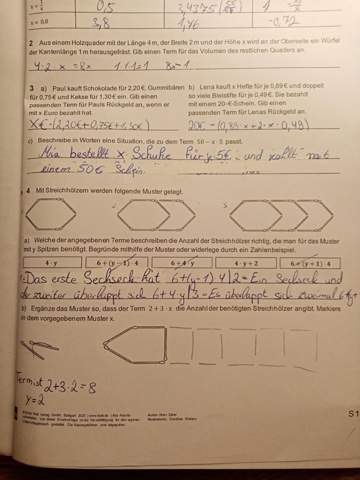 0,5
3,4375
1
x = 0,8
3,8
1,46
-0,72
2 Aus einem Holzquader mit der Länge 4 m, der Breite 2 m und der Höhe x wird an der Oberseite ein Würfel
der Kantenlänge 1 m herausgefräst. Gib einen Term für das Volumen des restlichen Quaders an.
4·2·x = 8x 1·1·1=1 8x-1
3 a) Paul kauft Schokolade für 2,20 €, Gummibären
für 0,75 € und Kekse für 1,30 € ein. Gib einen
passenden Term für Pauls Rückgeld an, wenn er
mit x Euro bezahlt hat.
x€-(2,20€+0,75€+1,30€)
b) Lena kauft x Hefte für je 0,89 € und doppelt
so viele Bleistifte für je 0,49 €. Sie bezahlt
mit einem 20-€-Schein. Gib einen
passenden Term für Lenas Rückgeld an.
20€-(0,89·x+2·x·0,49)
c) Beschreibe in Worten eine Situation, die zu dem Term 50 – x · 5 passt.
Mia bestellt x Schuhe für je 5€ und zahlt mit
einem 50€ Schein.
4 Mit Streichhölzern werden folgende Muster gelegt.
a) Welche der angegebenen Terme beschreiben die Anzahl der Streichhölzer richtig, die man für das Muster
mit y Spitzen benötigt. Begründe mithilfe der Muster oder widerlege durch ein Zahlenbeispiel.
4 · y
6 + (y – 1) · 4
6 + 4 · y
4 · y + 2
6 + (y + 1) · 4
Das erste Sechseck hat 6+(y-1)·4|2 = Ein Sechseck und
der zweiter überlappt sich 6+4·y|3 = Es überlappt sich zweimal
b) Ergänze das Muster so, dass der Term 2 + 3 · x die Anzahl der benötigten Streichhölzer angibt. Markiere
in dem vorgegebenem Muster x.
Term ist 2+3·2=8
y=2
S1